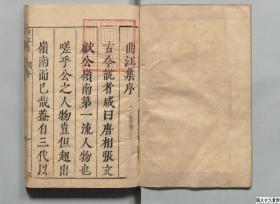 曲江集序
古今說者咸曰唐相張文
獻公嶺南第一流人物也
嗟乎公之人物豈但超出
嶺南而已哉蓋有三代以